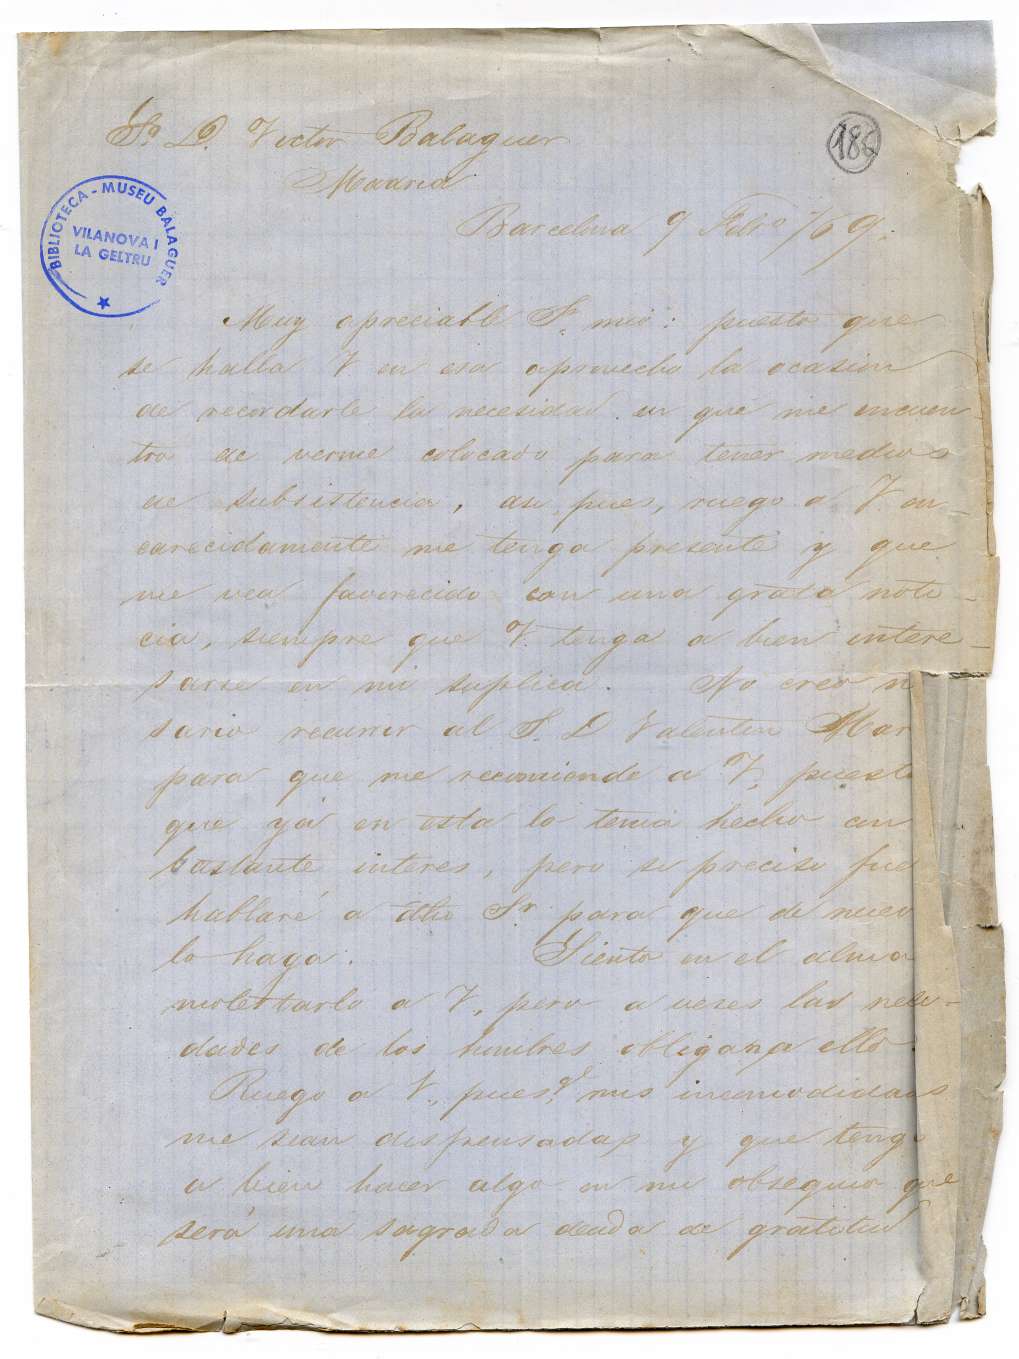 Sr. D. Victor Balaguer
186
Madrid
BIBLIOTECA - MUSEU BALAGUER
VILANOVA I
LA GELTRU
Barcelona 9 Febro /69.
Muy apreciable Sr. mio: puesto que
se halla V en esa aprovecho la ocasion
de recordarle la necesidad en que me encuen
tro de verme colocado para tener medios
de subsistencia, asi pues, ruego a V. en
carecidamente me tenga presente y que
me vea favorecido con una grata noti
cia, siempre que V. tenga a bien intere_
sarse en mi suplica. No creo n
sario recurrir al S. D Valentin Mar
para que me recomiende a V, puesto
que yá en esta lo tenia hecho con
bastante interes, pero si preciso fue
hablaré a dho Sr para que de nuev
lo haga. Siento en el alma
molestarlo a V, pero a veses las nece-
dades de los hombres obligan a ello.
Ruego a V., pues, qe mis incomodidades
me sean dispensadas y que tenga
a bien hacer algo en mi obsequio que
será una sagrada deuda de gratitud